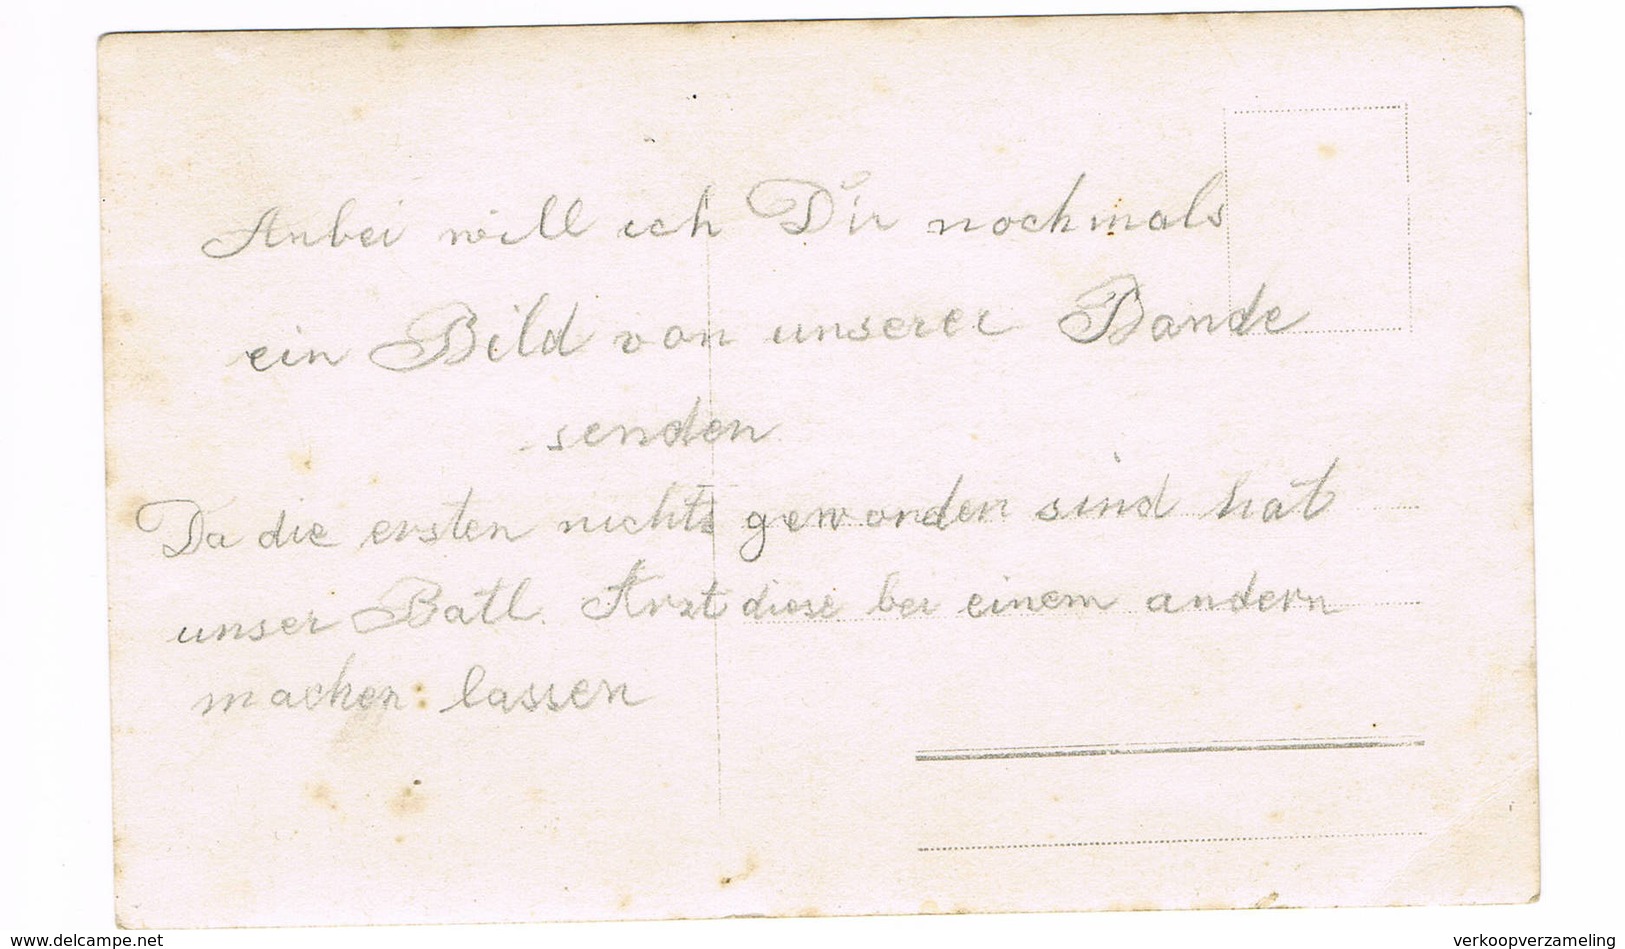 Anbei will ich Dir nochmals
ein Bild von unserer Bande
senden
Da die ersten nichts geworden sind hat
unser Batl. Arzt diese bei einem andern
machen lassen
www.delcampe.net
verkoopverzameling